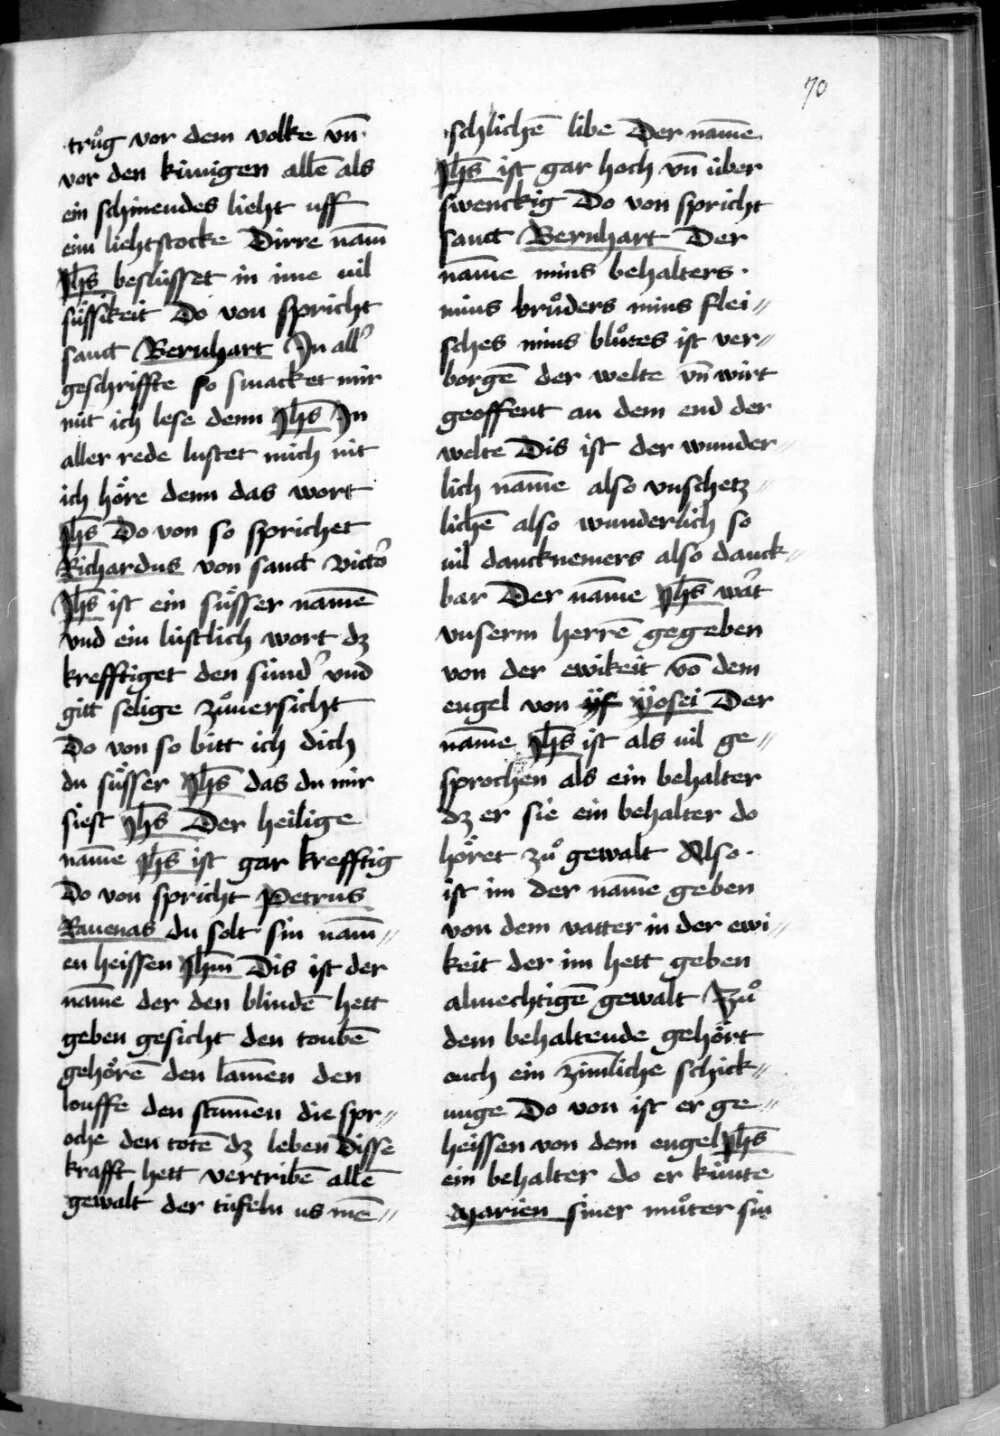 70
truͦg vor dem volke vn̄
vor den kúnigen allē als
ein schinendes lieht uff
eim liehtstocke Dirre nam̄
Jhs̄ beslússet in ime uil
sússikeit Do von spricht
sanct Bernhart Jn all'
geschriffte so smacket mir
nút ich lese denn Jhs̄ Jn
aller rede lustet mich nit
ich hoͤre denn das wort
Jhs̄ Do von so sprichet
Richardus von sanct victo'
Jhs̄ ist ein suͤsser namē
vnd ein lústlich wort dz
krefftiget den súnd' vnd
gitt selige zuͦuersicht
Do von so bitt ich dich
du suͤsser Jhs̄ das du mir
siest Jhs̄ Der heilige
nam̄e Jhs̄ ist gar krefftig
Do von spricht Petrus
Rauenas du solt sin nam̄〃
en heissen Jhm̄ Dis ist der
nam̄e der den blindē hett
geben gesicht den toubē
gehoͤrē den lam̄en den
louffe den stum̄en die spr〃
oche den totē dz leben Disse
krafft hett vertribē allē
gewalt der túfeln us mē〃
schlichē libe Der nam̄e
Jhs̄ ist gar hoch vn̄ úber
swenckig Do von spricht
sanct Bernhart Der
nam̄e mins behalters ·
mins bruͦders mins flei〃
sches mins bluͦtes ist ver〃
borgē der welte vn̄ wirt
geoffent an dem end der
welte Dis ist der wunder〃
lich nam̄e also vnschetz〃
lichē also wunderlich so
uil dancknemers also danck〃
bar Der nam̄e Jhs̄ wa't
vnserm herrē gegeben
von der ewikeit vō dem
engel von ÿf ÿosei Der
nam̄e Jhs̄ ist als uil ge〃
sprochen als ein behalter
dz er sie ein behalter do
hoͤret zuͦ gewalt Also ·
ist im der nam̄e geben
von dem vatter in der ewi〃
keit der im hett geben
almechtigē gewalt Zuͦ
dem behaltende gehoͤrt
ouch ein zim̄liche schick〃
unge Do von ist er ge〃
heissen von dem engel Jhs̄
ein behalter do er kúnte
Marien siner muͦter sin